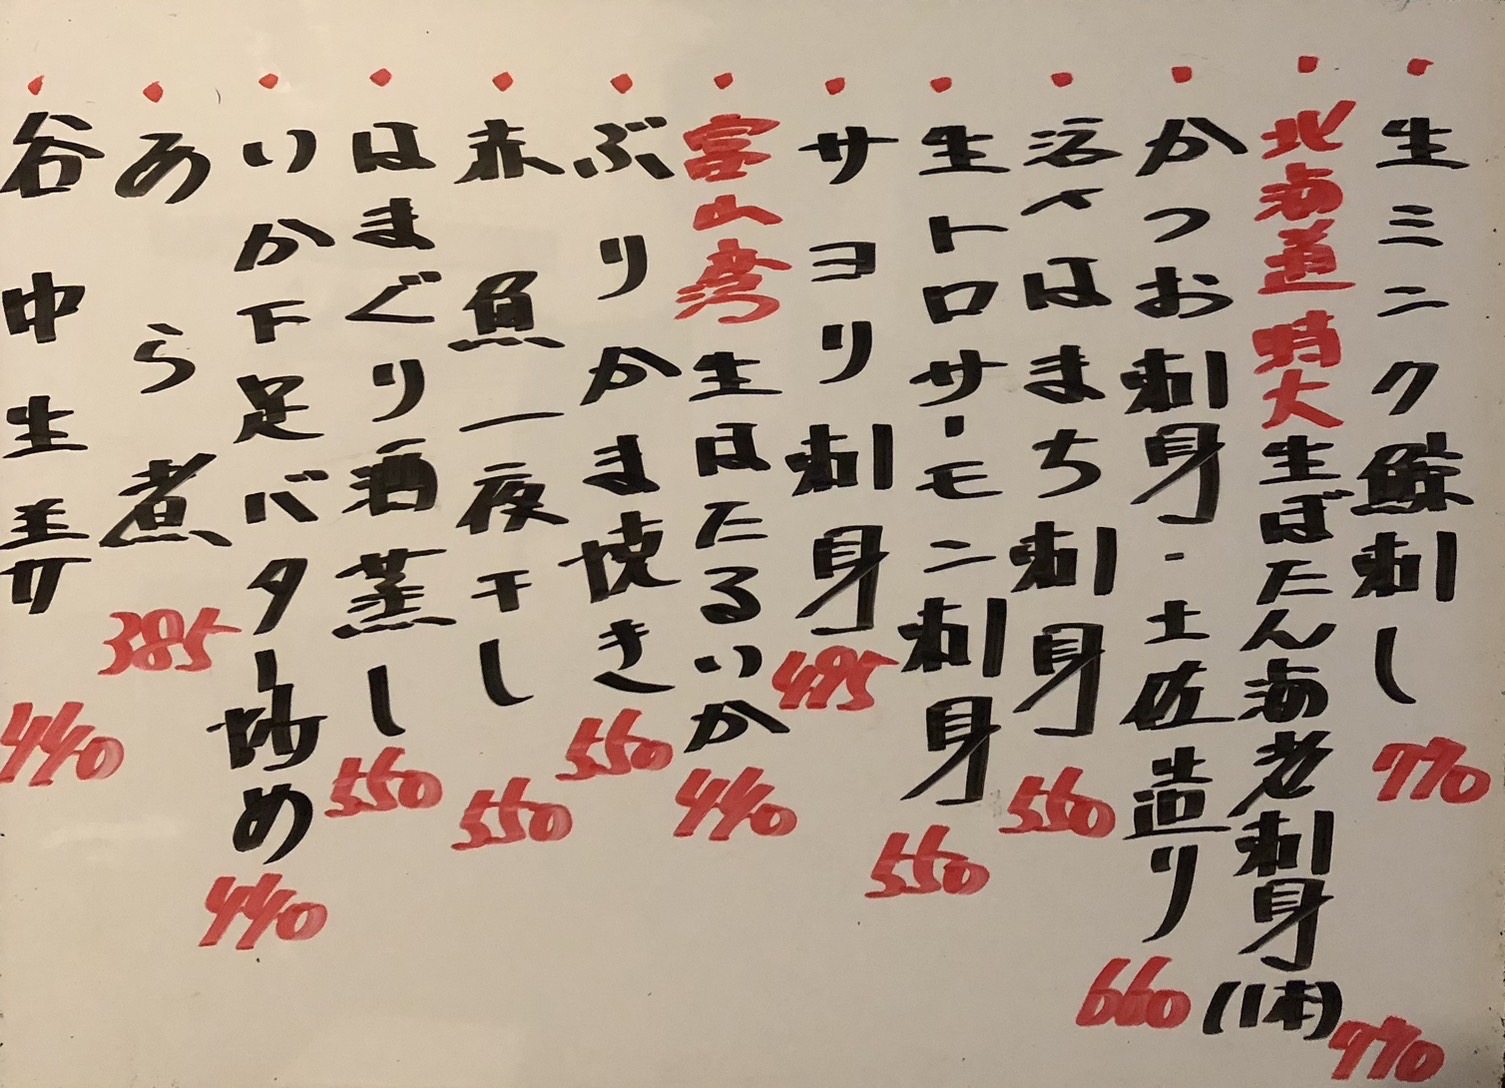 ・生ミンク鯨刺し 770
・北海道特大生ぼたん海老刺身(1本) 770
・かつお刺身・土佐造り 660
・活〆はまち刺身 550
・生トロサーモン刺身 550
・サヨリ刺身 495
・富山湾生ほたるいか 440
・ぶりかま焼き 550
・赤魚一夜干し 550
・はまぐり酒蒸し 550
・いか下足バター炒め 440
・あら煮 385
・谷中生姜 440